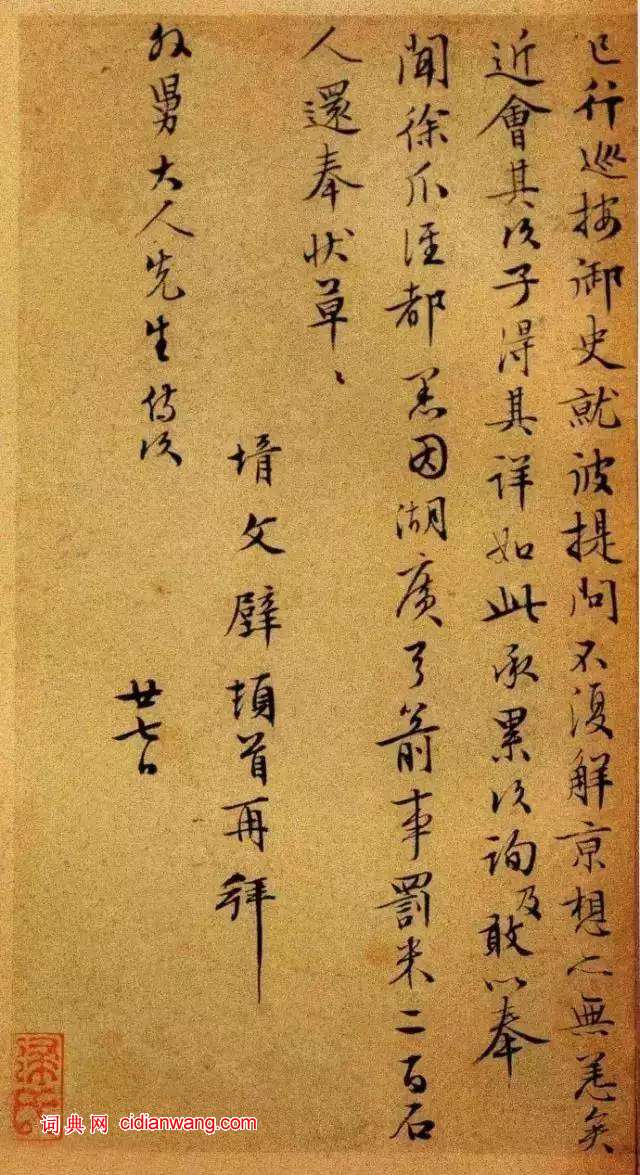 已行巡按御史就彼提問不復解京想亦無恙矣
近會其次子得其詳如此承累次詢及敢以奉
聞徐爪涇都憲因湖廣弓箭事罰米二百石
人還奉狀草〻
壻文壁頓首再拜
外舅大人先生侍次
廿七日
词典网 cidianwang.com